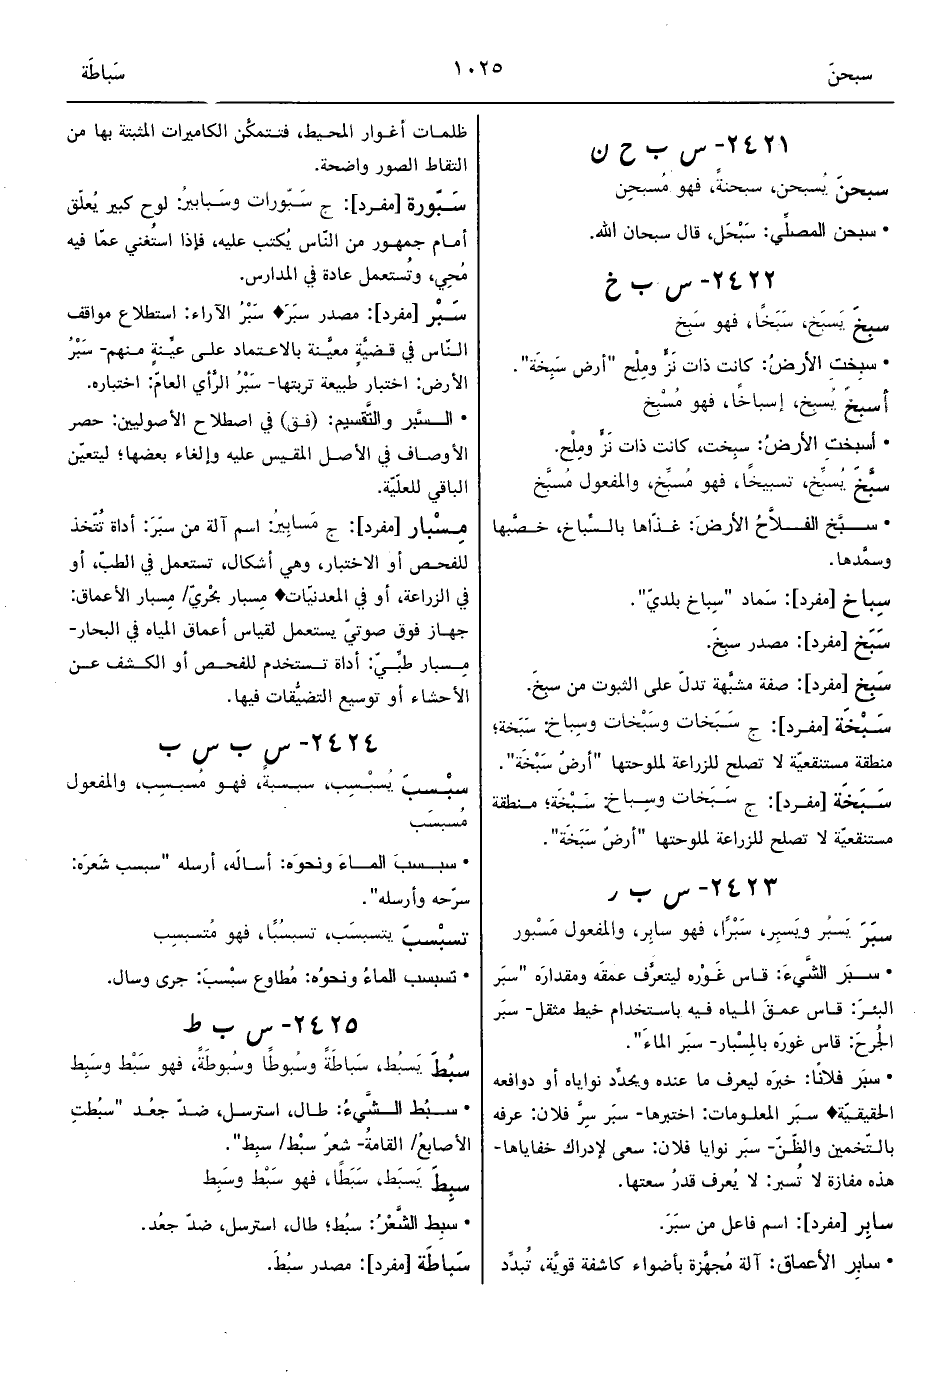 سبحنَ
١٠٢٥
سَباطَة
٢٤٢١- س ب ح ن
سبحنَ يُسبحن، سبحنةً، فهو مُسبحِن
• سبحن المصلِّي: سَبْحَل، قال سبحان الله.
٢٤٢٢- س ب خ
سبِخَ يَسبَخ، سَبَخًا، فهو سَبِخ
• سبِخت الأرضُ: كانت ذات نَزٍّ ومِلْح "أرض سَبِخَة".
أسبخَ يُسبخ، إسباخًا، فهو مُسْبِخ
• أسبخت الأرضُ: سبِخت، كانت ذات نَزٍّ ومِلْح.
سبَّخَ يُسبِّخ، تسبيخًا، فهو مُسبِّخ، والمفعول مُسبَّخ
• سـبَّخ الفـلاَّحُ الأرضَ: غـذّاها بالـسِّباخ، خـصَّبها
وسمَّدها.
سِباخ [مفرد]: سَماد "سِباخ بلديّ".
سَبَخ [مفرد]: مصدر سبِخَ.
سَبِخ [مفرد]: صفة مشبَّهة تدلّ على الثبوت من سبِخَ.
سَبْخَة [مفرد]: ج سَبَخات وسَبْخات وسِباخ: سَبَخة؛
منطقة مستنقعيّة لا تصلح للزراعة لملوحتها "أرضٌ سَبْخَة".
سَبَخَة [مفرد]: ج سَبَخات وسِباخ: سَبْخَة؛ منطقة
مستنقعيّة لا تصلح للزراعة لملوحتها "أرضٌ سَبَخَة".
٢٤٢٣- س ب ر
سبَرَ يَسبُر ويَسبِر، سَبْرًا، فهو سابِر، والمفعول مَسْبور
• سـبَر الشَّيءَ: قـاس غَوْره ليتعرَّف عمقَه ومقدارَه "سبَر
البئرَ: قـاس عمـقَ المـياه فيه باستخدام خيط مثقل- سبَر
الجُرحَ: قاس غورَه بالمِسْبار- سبَر الماءَ".
• سبَر فلانًا: خبَره ليعرف ما عنده ويحدِّد نواياه أو دوافعه
الحقيقيّة♦ سبَر المعلومات: اختبرها- سبَر سِرَّ فلان: عرفه
بالـتّخمين والظّنّ- سبَر نوايا فلان: سعى لإدراك خفاياها-
هذه مفازة لا تُسبر: لا يُعرف قدرُ سعتها.
سابِر [مفرد]: اسم فاعل من سبَرَ.
• سابِر الأعماق: آلة مُجهَّزة بأضواء كاشفة قويَّة، تُبدِّد
ظلمات أغوار المحيط، فتتمكَّن الكاميرات المثبتة بها من
التقاط الصور واضحة.
سَبّورة [مفرد]: ج سَبّورات وسَبابيرُ: لوح كبير يُعلَّق
أمام جمهور من النّاس يُكتب عليه، فإذا استُغني عمّا فيه
مُحِي، وتُستعمل عادة في المدارس.
سَبْر [مفرد]: مصدر سبَرَ♦ سَبْرُ الآراء: استطلاع مواقف
النّاس في قضيَّةٍ معيَّنة بالاعتماد على عيِّنةٍ منهم- سَبْرُ
الأرض: اختبار طبيعة تربتها- سَبْرُ الرَّأي العامّ: اختباره.
• الـسَّبْر والتَّقسيم: (فق) في اصطلاح الأصوليين: حصر
الأوصاف في الأصل المقيس عليه وإلغاء بعضها؛ ليتعيّن
الباقي للعلّيّة.
مِسْبار [مفرد]: ج مَسابِيرُ: اسم آلة من سبَرَ: أداة تُتّخذ
للفحص أو الاختبار، وهي أشكال، تستعمل في الطبّ، أو
في الزراعة، أو في المعدنيّات♦ مِسبار بحْريّ/ مِسبار الأعماق:
جهاز فوق صوتيّ يستعمل لقياس أعماق المياه في البحار-
مِسبار طبِّيّ: أداة تستخدم للفحص أو الكشف عن
الأحشاء أو توسيع التضيُّقات فيها.
٢٤٢٤- س ب س ب
سبْسبَ يُسبْسِب، سبسبةً، فهـو مُسبسِب، والمفعول
مُسبسَب
• سبسبَ المـاءَ ونحوَه: أسالَه، أرسله "سبسب شَعرَه:
سرّحه وأرسله".
تسبْسبَ يتسبسَب، تسبسُبًا، فهو مُتسبسِب
• تسبسب الماءُ ونحوُه: مُطاوع سبْسبَ: جرى وسال.
٢٤٢٥- س ب ط
سبُطَ يَسبُط، سَباطَةً وسُبوطًا وسُبوطَةً، فهو سَبْط وسَبِط
• سـبُط الـشَّيءُ: طـال، استرسل، ضـدّ جعُـد "سبُطتِ
الأصابعُ/ القامةُ- شعرٌ سبْط/ سبِط".
سبِطَ يَسبَط، سَبَطًا، فهو سَبْط وسَبِط
• سبِط الشَّعْرُ: سبُط؛ طال، استرسل، ضدّ جعُد.
سَباطَة [مفرد]: مصدر سبُطَ.